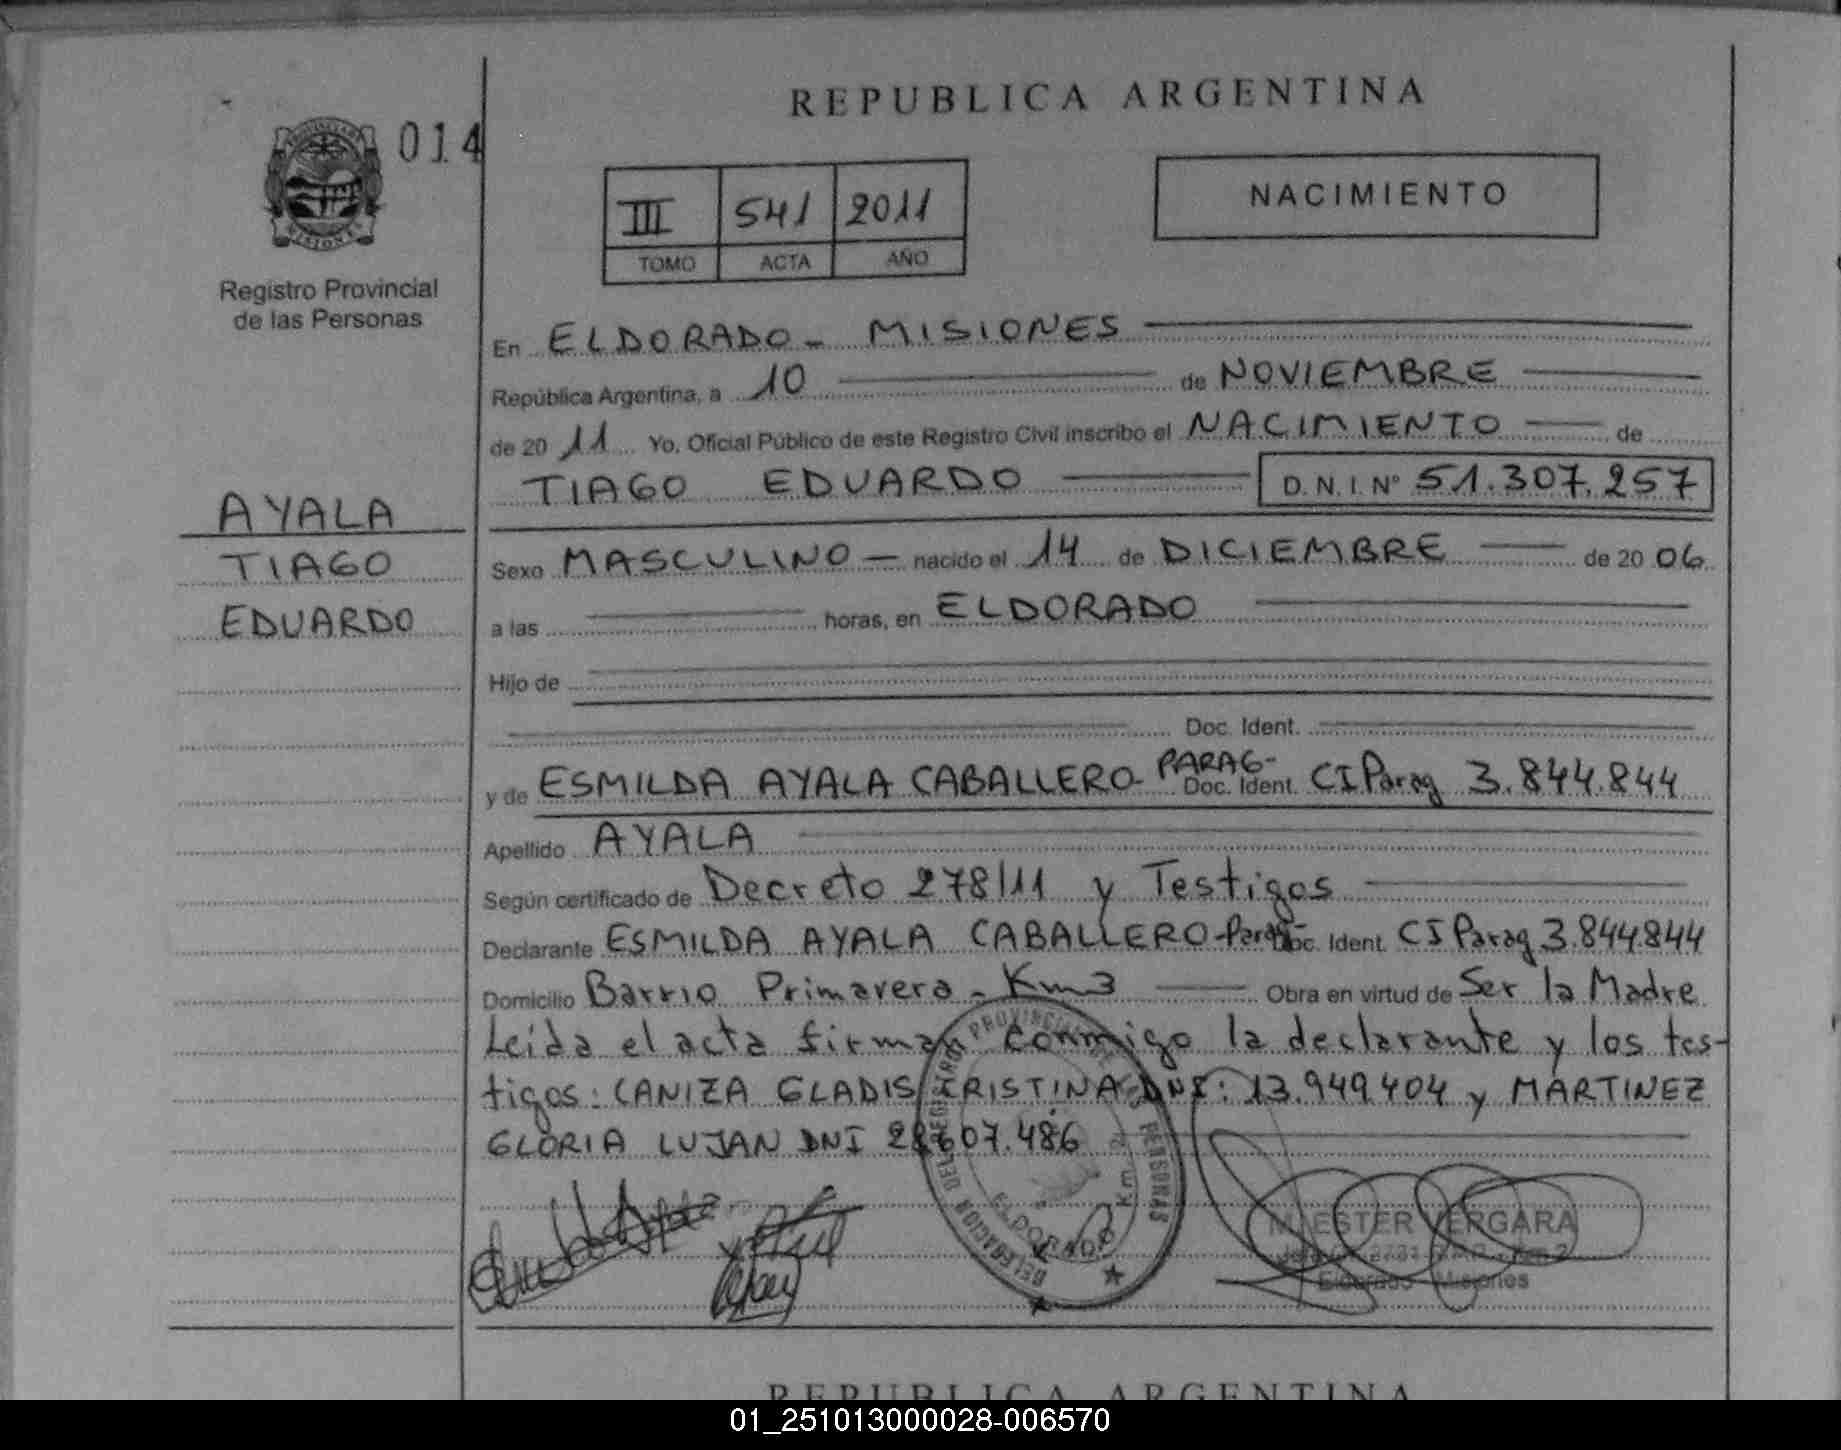 REPUBLICA ARGENTINA
014
III 541 2011
TOMO ACTA AÑO
NACIMIENTO
PROVINCIA DE MISIONES
Registro Provincial
de las Personas
AYALA
TIAGO
EDUARDO
En ELDORADO - MISIONES
República Argentina, a 10 de NOVIEMBRE
de 20 11 Yo, Oficial Público de este Registro Civil inscribo el NACIMIENTO de
TIAGO EDUARDO D.N.I. Nº 51.307.257
Sexo MASCULINO - nacido el 14 de DICIEMBRE de 20 06
a las horas, en ELDORADO
Hijo de
Doc. Ident.
y de ESMILDA AYALA CABALLERO - PARAG- Doc. Ident. CI Parag 3.844.844
Apellido AYALA
Según certificado de Decreto 278/11 y Testigos
Declarante ESMILDA AYALA CABALLERO - Parag- Doc. Ident. CI Parag 3.844844
Domicilio Barrio Primavera - Km3 Obra en virtud de Ser la Madre
Leída el acta firman conmigo la declarante y los tes-
tigos: CANIZA GLADIS CRISTINA DNI: 13.949.404 y MARTINEZ
GLORIA LUJAN DNI 607.486
REGISTRO PROVINCIAL DE LAS PERSONAS
DELEGACION
ELDORADO Km. 2
M. ESTER VERGARA
Eldorado - Misiones
REPUBLICA ARGENTINA
01_251013000028-006570